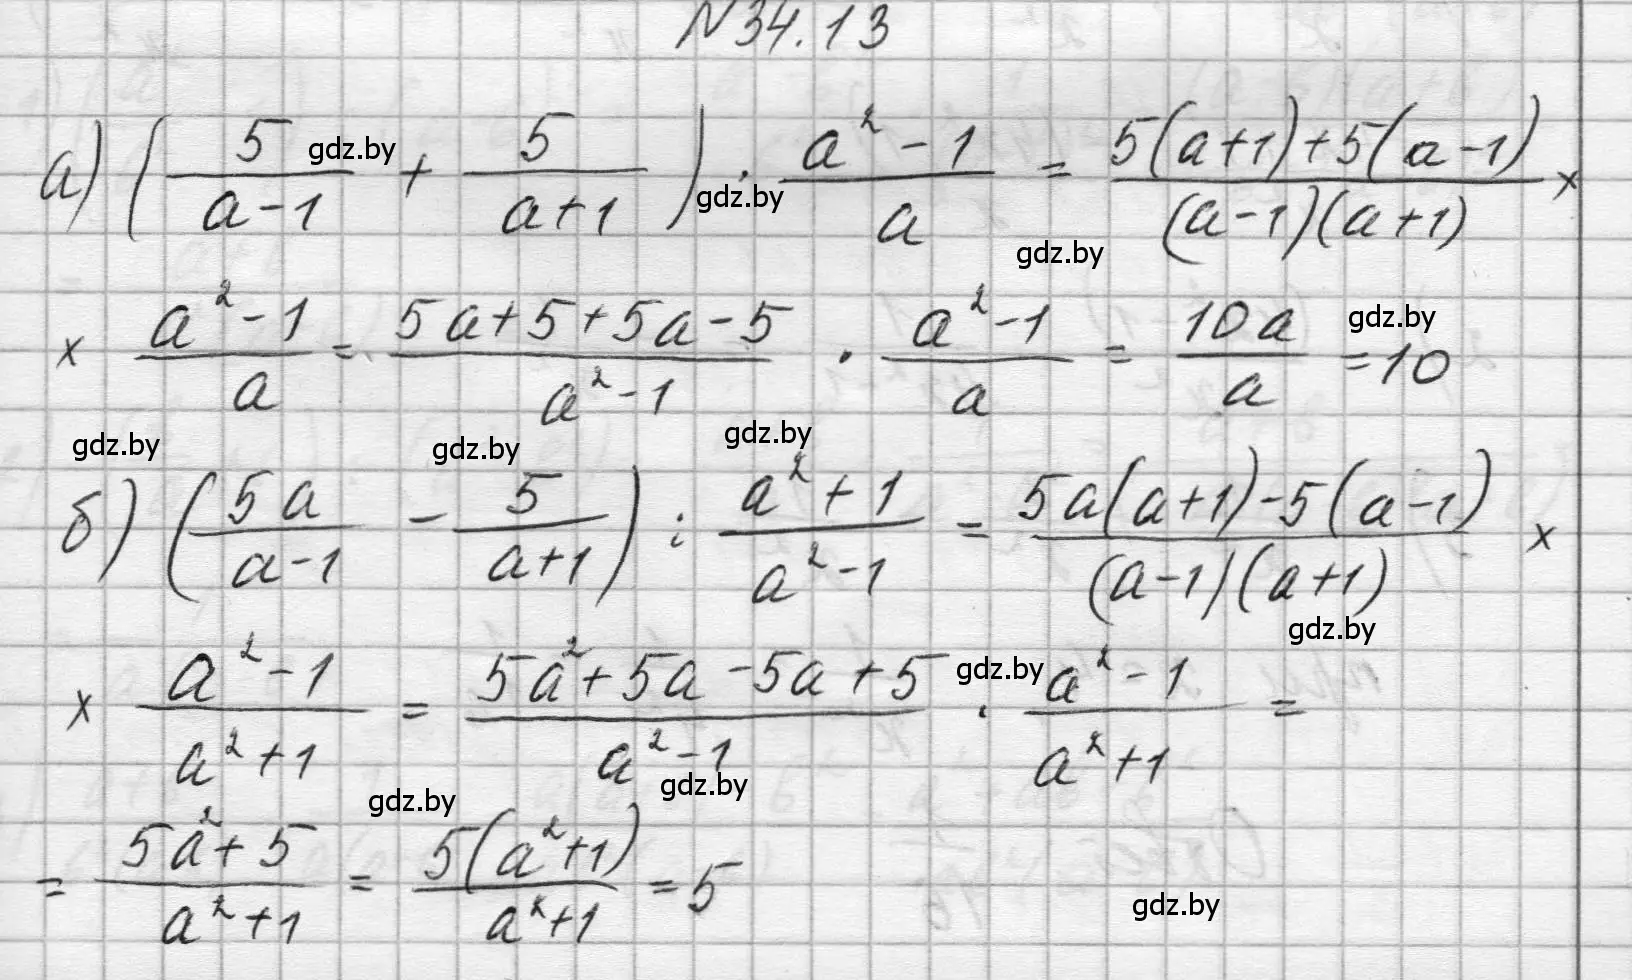 N34.13
а) (5/(a-1) + 5/(a+1)) · (a²-1)/a = (5(a+1)+5(a-1))/((a-1)(a+1)) ×
× (a²-1)/a = (5a+5+5a-5)/(a²-1) · (a²-1)/a = 10a/a = 10
б) (5a/(a-1) - 5/(a+1)) : (a²+1)/(a²-1) = (5a(a+1)-5(a-1))/((a-1)(a+1)) ×
× (a²-1)/(a²+1) = (5a²+5a-5a+5)/(a²-1) · (a²-1)/(a²+1) =
= (5a²+5)/(a²+1) = 5(a²+1)/(a²+1) = 5
gdz.by
gdz.by
gdz.by
gdz.by
gdz.by
gdz.by
gdz.by
gdz.by
gdz.by
gdz.by
gdz.by
gdz.by